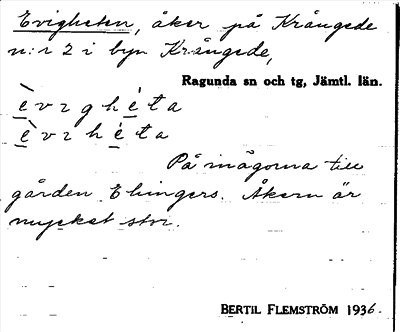 Evigheten, åker på Krångede
n:r 2 i byn Krångede,
Ragunda sn och tg, Jämtl. län.
På inägorna till
gården Elvingers. Åkern är
mycket stor.
BERTIL FLEMSTRÖM 1936.